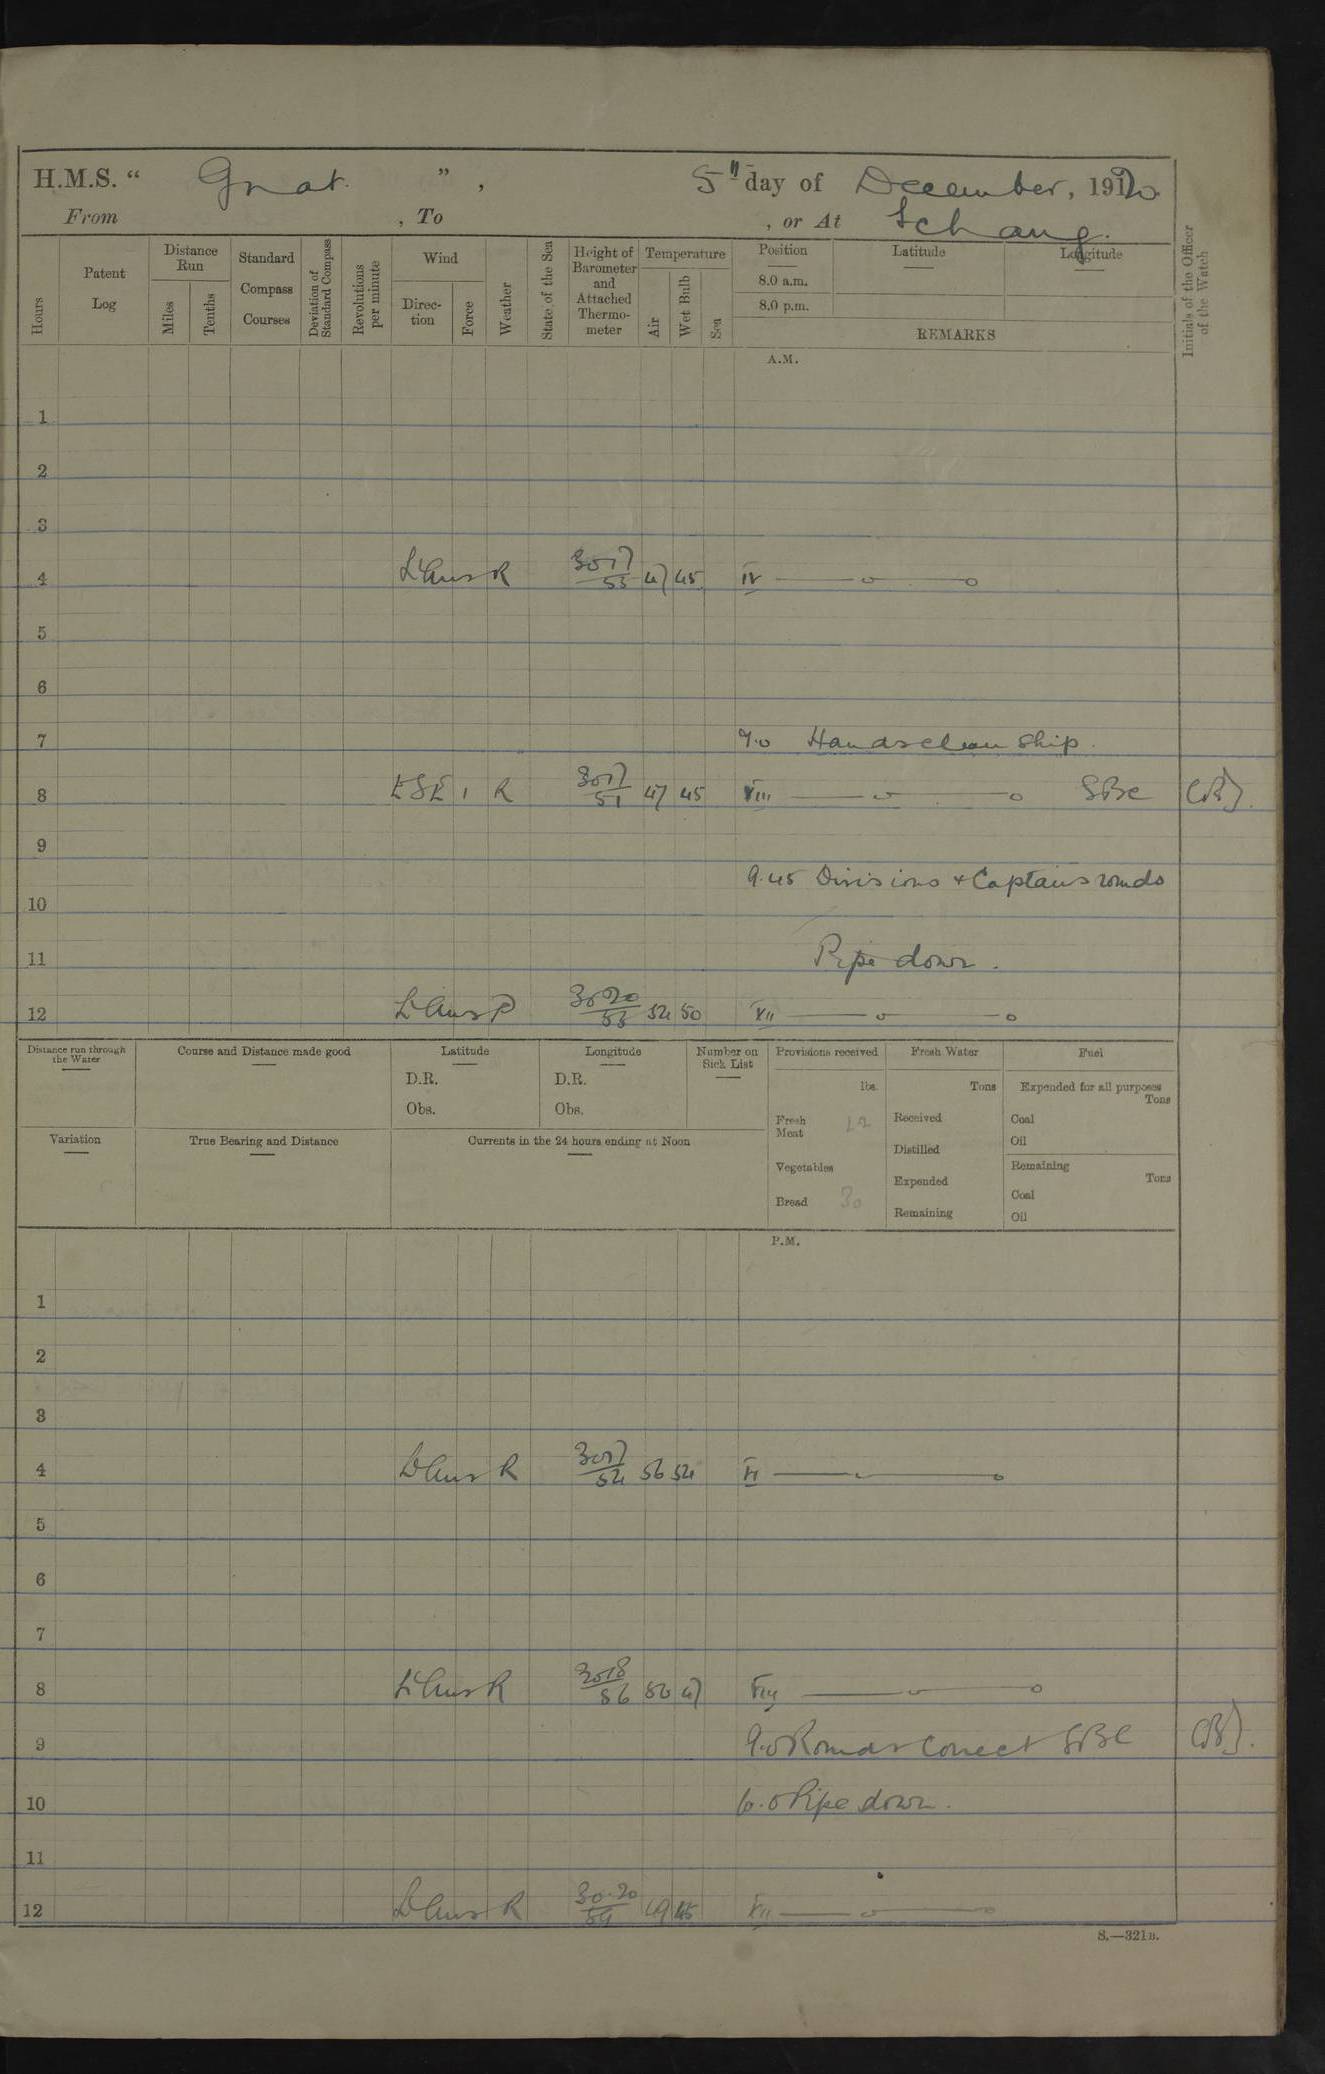 H.M.S. “ Gnat. ” , 5th day of December, 1920
From , To , or At Ichang.
Hours
Patent Log
Distance Run
Miles
Tenths
Standard Compass Courses
Deviation of Standard Compass
Revolutions per minute
Wind
Direction
Force
Weather
State of the Sea
Height of Barometer and Attached Thermometer
Temperature
Air
Wet Bulb
Sea
Position
8.0 a.m.
8.0 p.m.
Latitude
Longitude
REMARKS
Initials of the Officer of the Watch
A.M.
1
2
3
4 Lt Airs R 3017/53 47 45 IV — o — o
5
6
7 7.0 Hands clean Ship.
8 ESE 1 R 3017/51 47 45 VIII — o — o SBC
9
9.45 Divisions & Captains rounds
10
11 Pipe down.
12 Lt Airs R 3020/53 52 50 XII — o — o
Distance run through the Water
Course and Distance made good
Latitude
D.R.
Obs.
Longitude
D.R.
Obs.
Number on Sick List
Provisions received
lbs.
Fresh Meat 12
Vegetables
Bread 30
Fresh Water
Tons
Received
Distilled
Expended
Remaining
Fuel
Expended for all purposes
Tons
Coal
Oil
Remaining
Tons
Coal
Oil
Variation
True Bearing and Distance
Currents in the 24 hours ending at Noon
P.M.
1
2
3
4 Lt Airs R 3017/52 56 52
5
6
7
8 Lt Airs R 3018/56 50 47 VIII — o
9 9.0 Rounds correct SBC
10 10.0 Pipe down.
11
12 Lt Airs R 30.20 49 45 XII — o — o
S.—321B.